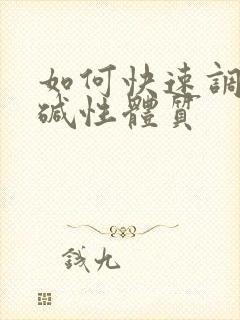 如何快速調
碱性體質
錢九